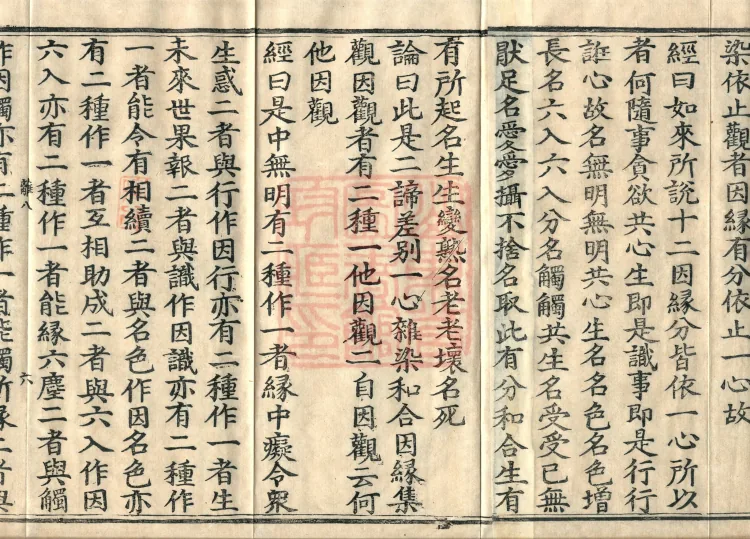 染依止觀者因縁有分依止一心故
經曰如來所說十二因縁分皆依一心所以
者何隨事貪欲共心生即是識事即是行行
誑心故名無明無明共心生名名色名色增
長名六入六入分名觸觸共生名受受已無
猒足名愛愛攝不捨名取此有分和合生有
有所起名生生變熟名老老壞名死
論曰此是二諦差别一心雜染和合因縁集
觀因觀者有二種一他因觀二自因觀云何
他因觀
經曰是中無明有二種作一者縁中癡令衆
生惑二者與行作因行亦有二種作一者生
未來世果報二者與識作因識亦有二種作
一者能令有相續二者與名色作因名色亦
有二種作一者互相助成二者與六入作因
六入亦有二種作一者能縁六塵二者與觸
離八
六
作因觸亦有二種作一者能觸所縁二者與